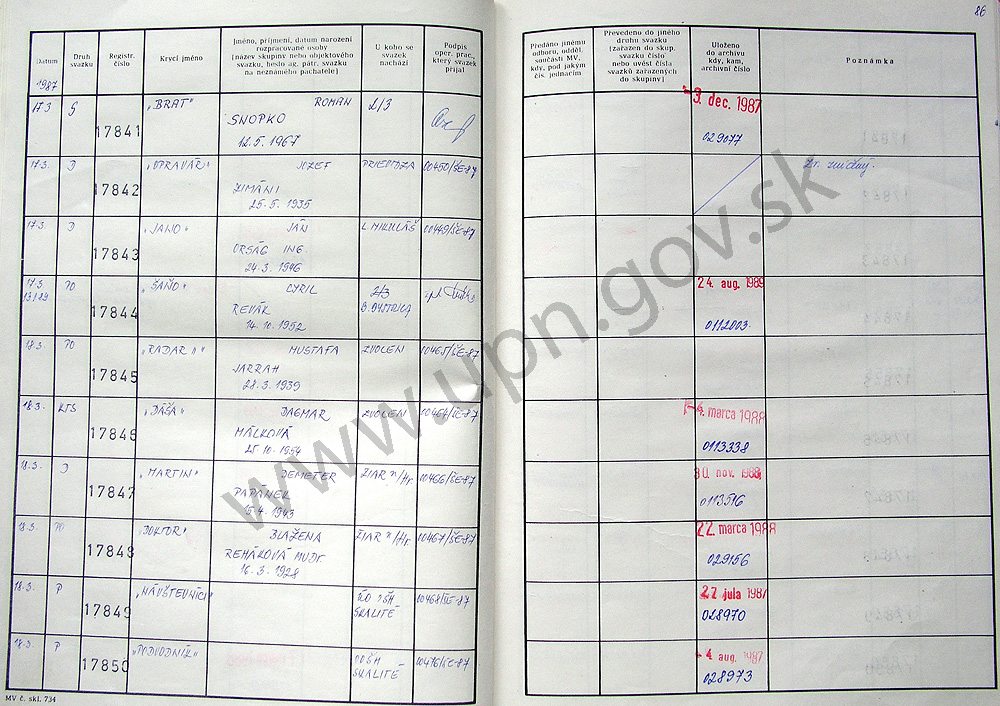 86
Datum
1987
Druh svazku
Registr. číslo
Krycí jméno
Jméno, příjmení, datum narození rozpracované osoby
[název skupiny nebo objektového svazku, heslo ag. pátr. svazku na neznámého pachatele]
U koho se svazek nachází
Podpis oper. prac., který svazek přijal
Předáno jinému odboru, odděl. součásti MV, kdy, pod jakým čís. jednacím
Převedeno do jiného druhu svazku [zařazen do skup. svazku číslo nebo uvést čísla svazků zařazených do skupiny]
Uloženo do archivu kdy, kam, archivní číslo
Poznámka
17.3. 17841 „BRAT" ROMAN 2/3 - 3. dec. 1987
SNOPKO
12.5.1967 029077
17.3. D 17842 „OPRAVÁŘ" JOZEF PRIEVIDZA 00450/ŠE-87
ZIMÁNI
25.5.1935
17.3. D 17843 „JANO" JÁN L. MIKULÁŠ 00449/ŠE-87
ORSÁG ING
24.3.1946
17.3. PO 17844 „ŠAŇO" CYRIL 2/3 24. aug. 1989
REVÁK B. BYSTRICA
14.10.1952 0112003
18.3. PO 17845 „RADAR II" MUSTAFA ZVOLEN 00465/ŠE-87
JARRAH
28.3.1939
18.3. KTS 17846 „DÁŠA" DAGMAR ZVOLEN 00464/ŠE-87 - 4. marca 1988
MÁLKOVÁ
25.10.1954 0113338
18.3. D 17847 „MARTIN" DEMETER ŽIAR n/Hr. 00466/ŠE-87 30. nov. 1988
PAPÁNEK
15.4.1943 0113516
18.3. PO 17848 „DOKTOR" BLAŽENA ŽIAR n/Hr. 00467/ŠE-87 22. marca 1988
REHÁKOVÁ MUDr.
16.3.1928 029156
18.3. P 17849 „NÁVŠTEVNÍCI" OSH SKALITÉ 00468/ŠE-87 27. júla 1987
028970
18.3. P 17850 „PODVODNÍK" OOSH SKALITÉ 00476/ŠE-87 - 4. aug. 1987
028973
MV č. skl. 734
www.upn.gov.sk